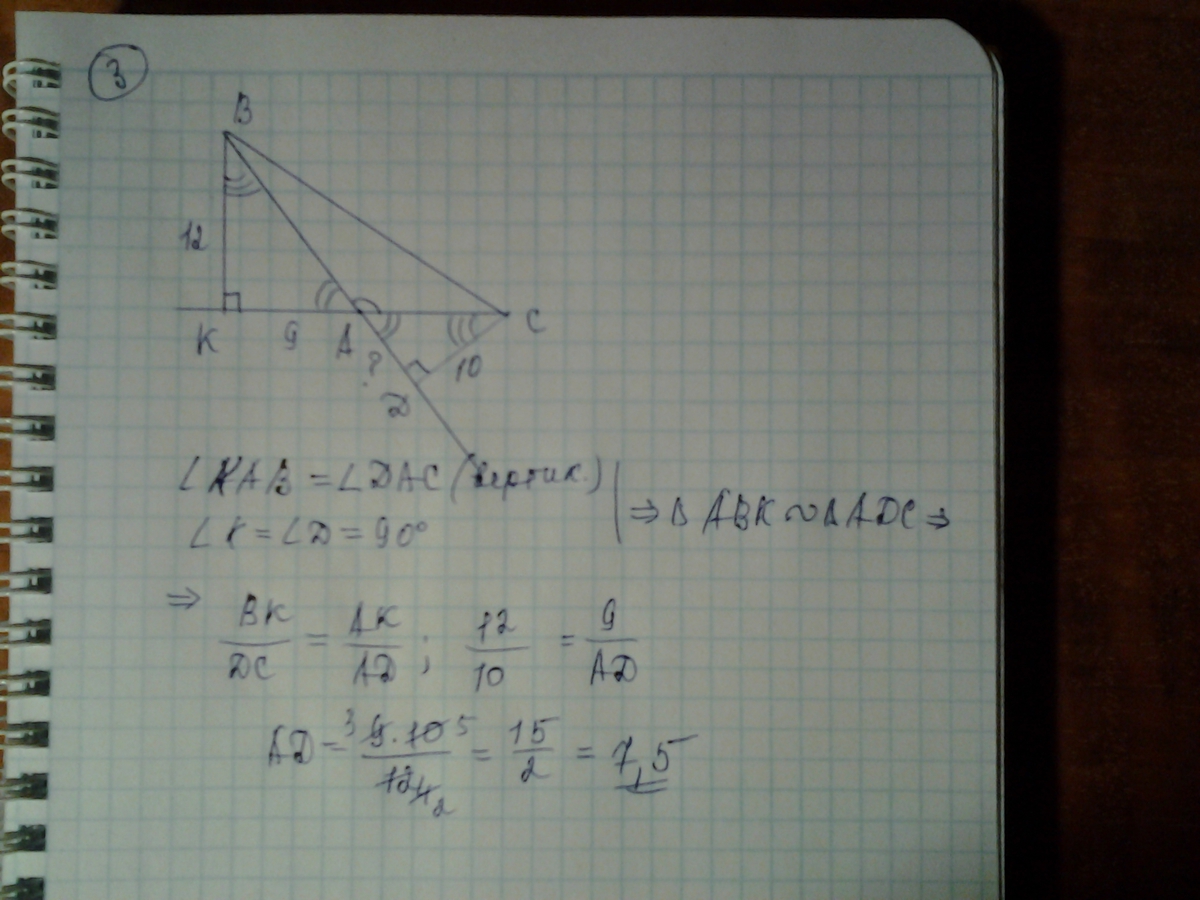 3
B
12
K 9 A ? 10 C
D
∠KAB = ∠DAC (вертик.)
∠K = ∠D = 90° ⇒ Δ ABK ~ Δ ADC ⇒
⇒ BK/DC = AK/AD ; 12/10 = 9/AD
AD = 9·10/12 = 15/2 = 7,5